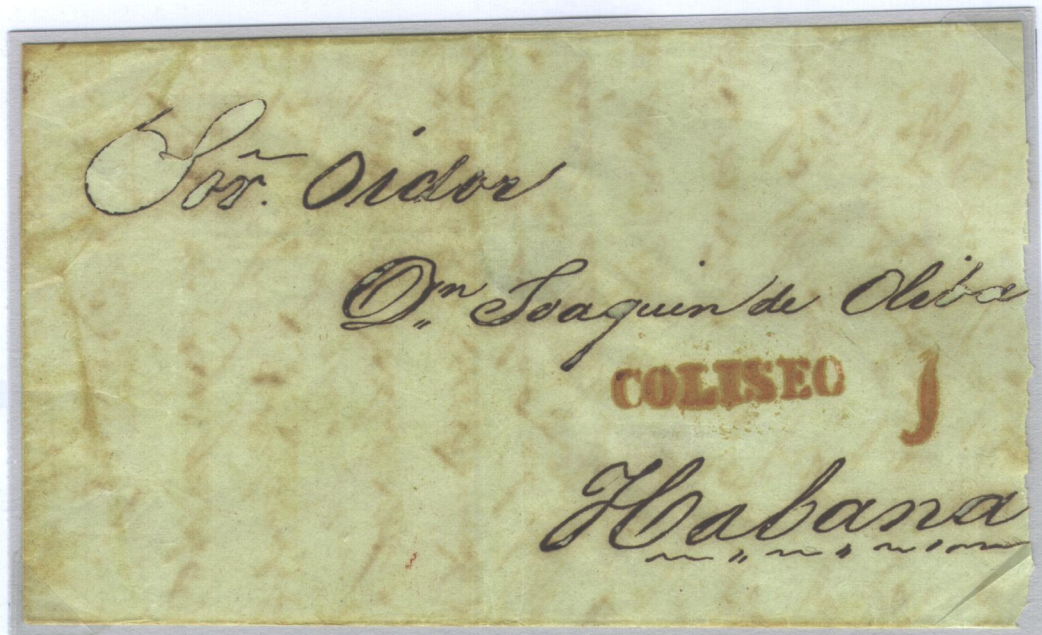 Sõr. Oidor
Dn Joaquin de Oliba
COLISEO J
Habana